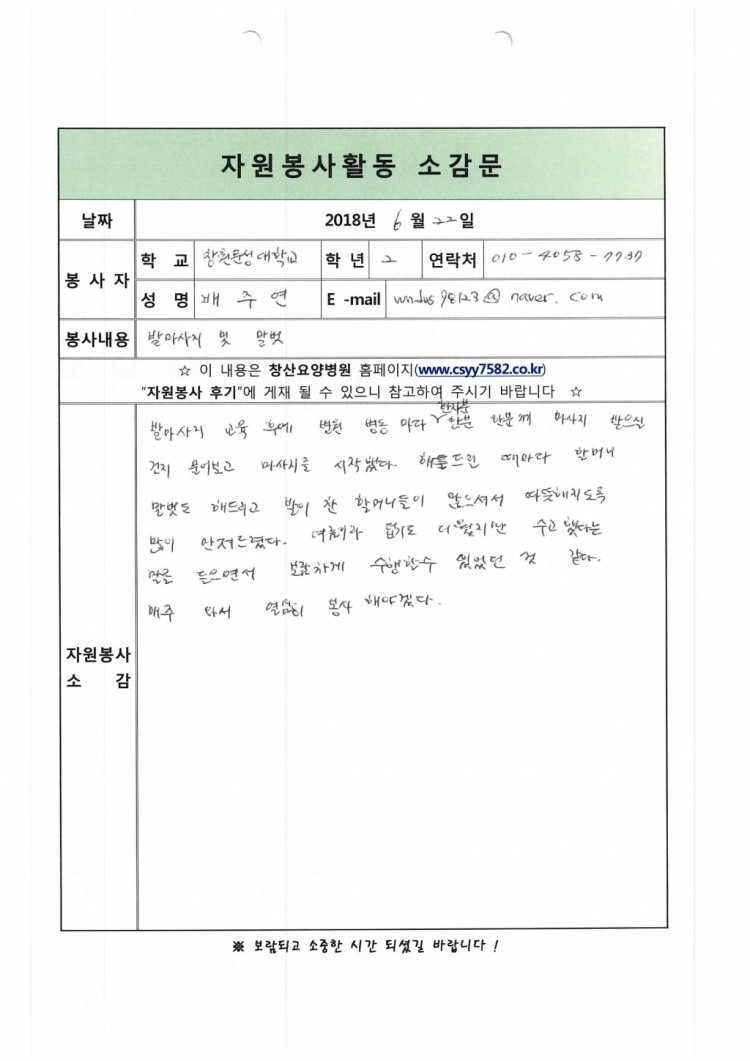 자원봉사활동 소감문
날짜 2018년 6 월 22일
봉 사 자
학 교 창원문성대학교 학 년 2 연락처 010-4058-7797
성 명 배 주 연 E -mail wndus98123@naver.com
봉사내용 발마사지 및 말벗
☆ 이 내용은 창산요양병원 홈페이지(www.csyy7582.co.kr)
"자원봉사 후기"에 게재 될 수 있으니 참고하여 주시기 바랍니다 ☆
자원봉사
소 감
환자분
발마사지 교육 후에 병원 병동 마다 한분 한분께 마사지 받으실
건지 물어보고 마사지를 시작했다. 해드린 때마다 할머니
말벗도 해드리고 발이 찬 할머니들이 많으셔서 따뜻해지도록
많이 만져드렸다. 여름이라 덥기도 더웠지만 수고했다는
말을 들으면서 보람차게 수행할수 있었던 것 같다.
매주 와서 열심히 봉사 해야겠다.
※ 보람되고 소중한 시간 되셨길 바랍니다 !